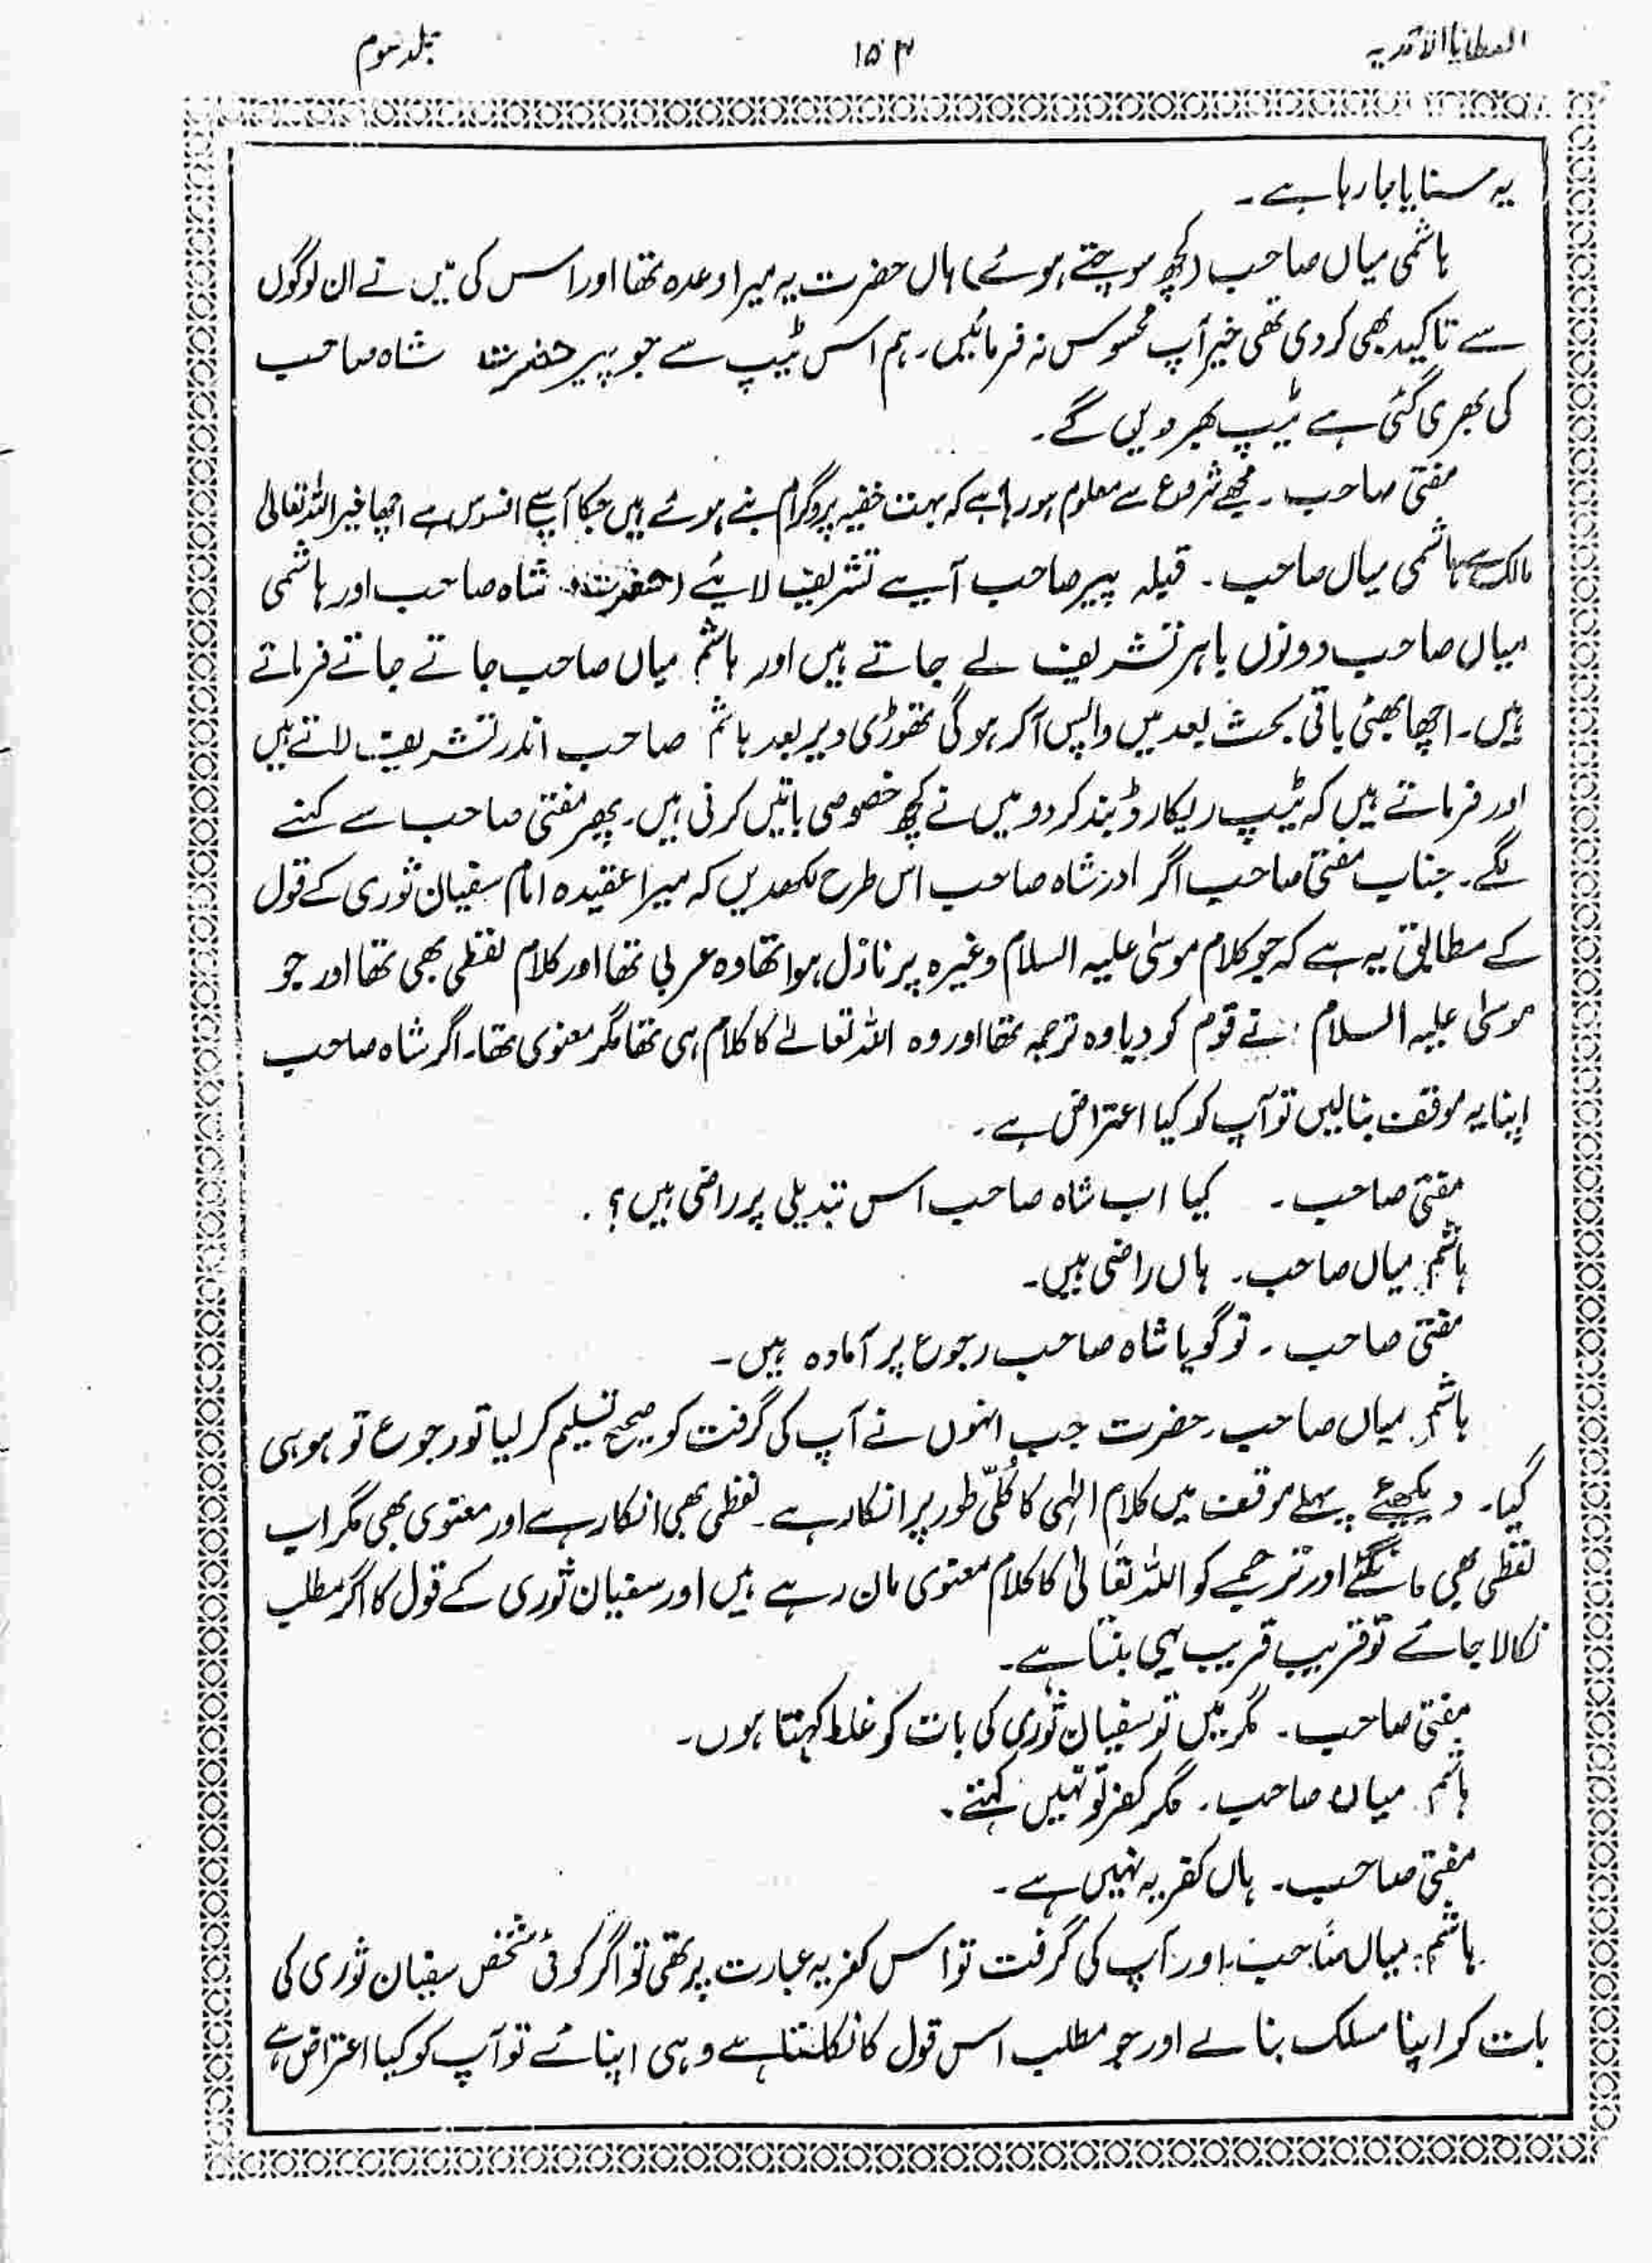 العطایا الاحمدیہ ۱۵۳ جلد سوم
یہ سنایا جا رہا ہے۔
ہاشمی میاں صاحب (کچھ سوچتے ہوئے) ہاں حضرت یہ میرا وعدہ تھا اور اس کی میں نے ان لوگوں
سے تاکید بھی کر دی تھی خیر آپ محسوس نہ فرمائیں۔ ہم اس ٹیپ سے جو پیر حضرت شاہ صاحب
کی بھری گئی ہے ٹیپ بھر دیں گے۔
مفتی صاحب ۔ مجھے شروع سے معلوم ہو رہا ہے کہ بہت خفیہ پروگرام بنے ہوئے ہیں جسکا آپ سے افسوس ہے اچھا خیر اللہ تعالی
مالک ہے ہاشمی میاں صاحب ۔ قبلہ پیر صاحب آپ تشریف لائیے (حضرت شاہ صاحب اور ہاشمی
میاں صاحب دونوں باہر تشریف لے جاتے ہیں اور ہاشم میاں صاحب جاتے جاتے فرماتے
ہیں۔ اچھا بھئی باقی بحث بعد میں واپس آکر ہوگی تھوڑی دیر بعد ہاشم صاحب اندر تشریف لاتے ہیں
اور فرماتے ہیں کہ ٹیپ ریکارڈ بند کر دو میں نے کچھ خصوصی باتیں کرنی ہیں۔ پھر مفتی صاحب سے کہنے
لگے۔ جناب مفتی صاحب اگر شاہ صاحب اس طرح لکھدیں کہ میرا عقیدہ امام سفیان ثوری کے قول
کے مطابق یہ ہے کہ جو کلام موسیٰ علیہ السلام وغیرہ پر نازل ہوا تھا وہ عربی تھا اور کلام لفظی بھی تھا اور جو
موسیٰ علیہ السلام نے قوم کو دیا وہ ترجمہ تھا اور وہ اللہ تعالےٰ کا کلام ہی تھا مگر معنوی تھا۔ اگر شاہ صاحب
اپنا یہ موقف بنا لیں تو آپ کو کیا اعتراض ہے۔
مفتی صاحب ۔ کیا اب شاہ صاحب اس تبدیلی پر راضی ہیں؟
ہاشم میاں صاحب۔ ہاں راضی ہیں۔
مفتی صاحب ۔ تو گویا شاہ صاحب رجوع پر آمادہ ہیں۔
ہاشم میاں صاحب۔ حضرت جب انہوں نے آپ کی گرفت کو صحیح تسلیم کر لیا تو رجوع تو ہو ہی
گیا۔ دیکھئے پہلے موقف میں کلام الٰہی کا کُلّی طور پر انکار ہے۔ لفظی بھی انکار ہے اور معنوی بھی مگر اب
لفظی بھی مانگئے اور ترجمے کو اللہ تعالیٰ کا کلام معنوی مان رہے ہیں اور سفیان ثوری کے قول کا اگر مطلب
نکالا جائے تو قریب قریب یہی بنتا ہے۔
مفتی صاحب ۔ مگر میں تو سفیان ثوری کی بات کو غلط کہتا ہوں۔
ہاشم میاں صاحب۔ مگر کفر تو نہیں کہتے۔
مفتی صاحب۔ ہاں کفریہ نہیں ہے۔
ہاشم میاں صاحب۔ اور آپ کی گرفت تو اس کفریہ عبارت پر تھی تو اگر کوئی شخص سفیان ثوری کی
بات کو اپنا مسلک بنا لے اور جو مطلب اس قول کا نکلتا ہے وہی اپنائے تو آپ کو کیا اعتراض ہے